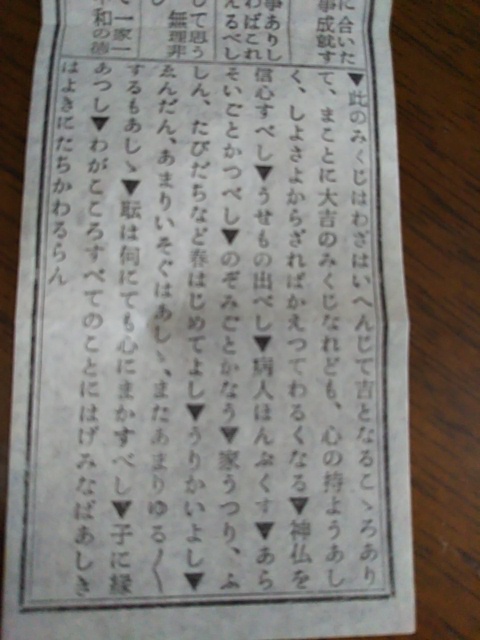 ▼此のみくじはわざはいへんじて吉となるこゝろあり
て、まことに大吉のみくじなれども、心の持ようあし
く、しよさよからざればかえつてわるくなる▼神仏を
信心すべし▼うせもの出べし▼病人ほんぷくす▼あら
そいごとかつべし▼のぞみごとかなう▼家うつり、ふ
しん、たびだちなど春はじめてよし▼うりかいよし▼
ゑんだん、あまりいそぐはあしゝ、またあまりゆる〱
するもあしゝ▼は何にても心にまかすべし▼子に縁
あつし▼わがこころすべてのことにはげみなばあしき
はよきにたちかわるらん
に合いた
事成就す
事ありし
わばこれ
えるべし
して思う
無理非
て一家一
和の徳